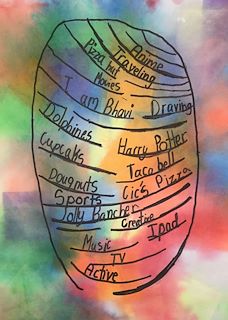 Anime
Traveling
Pizza hut
Movies
I am Bhavi Draving
Dolphines
Harry Potter
Cupcaks
Taco bell
Dougnuts
Cic's Pizza
Sports
Jolly Rancher
Creative
Ipod
Music
TV
Active